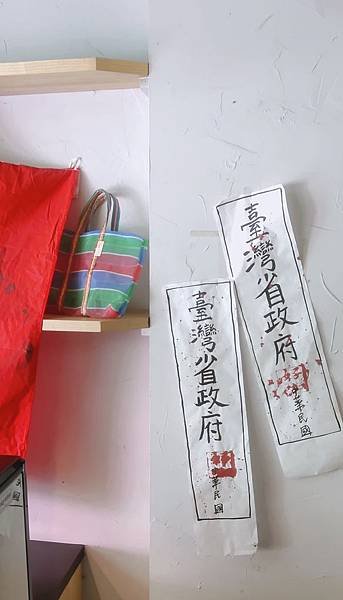 臺灣省政府
封
中華民國
臺灣省政府
封
中華民國